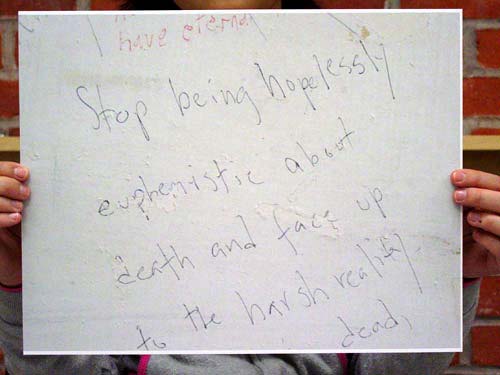 have eternal
Stop being hopelessly
euphemistic about
death and face up
to the harsh reality.
dead,